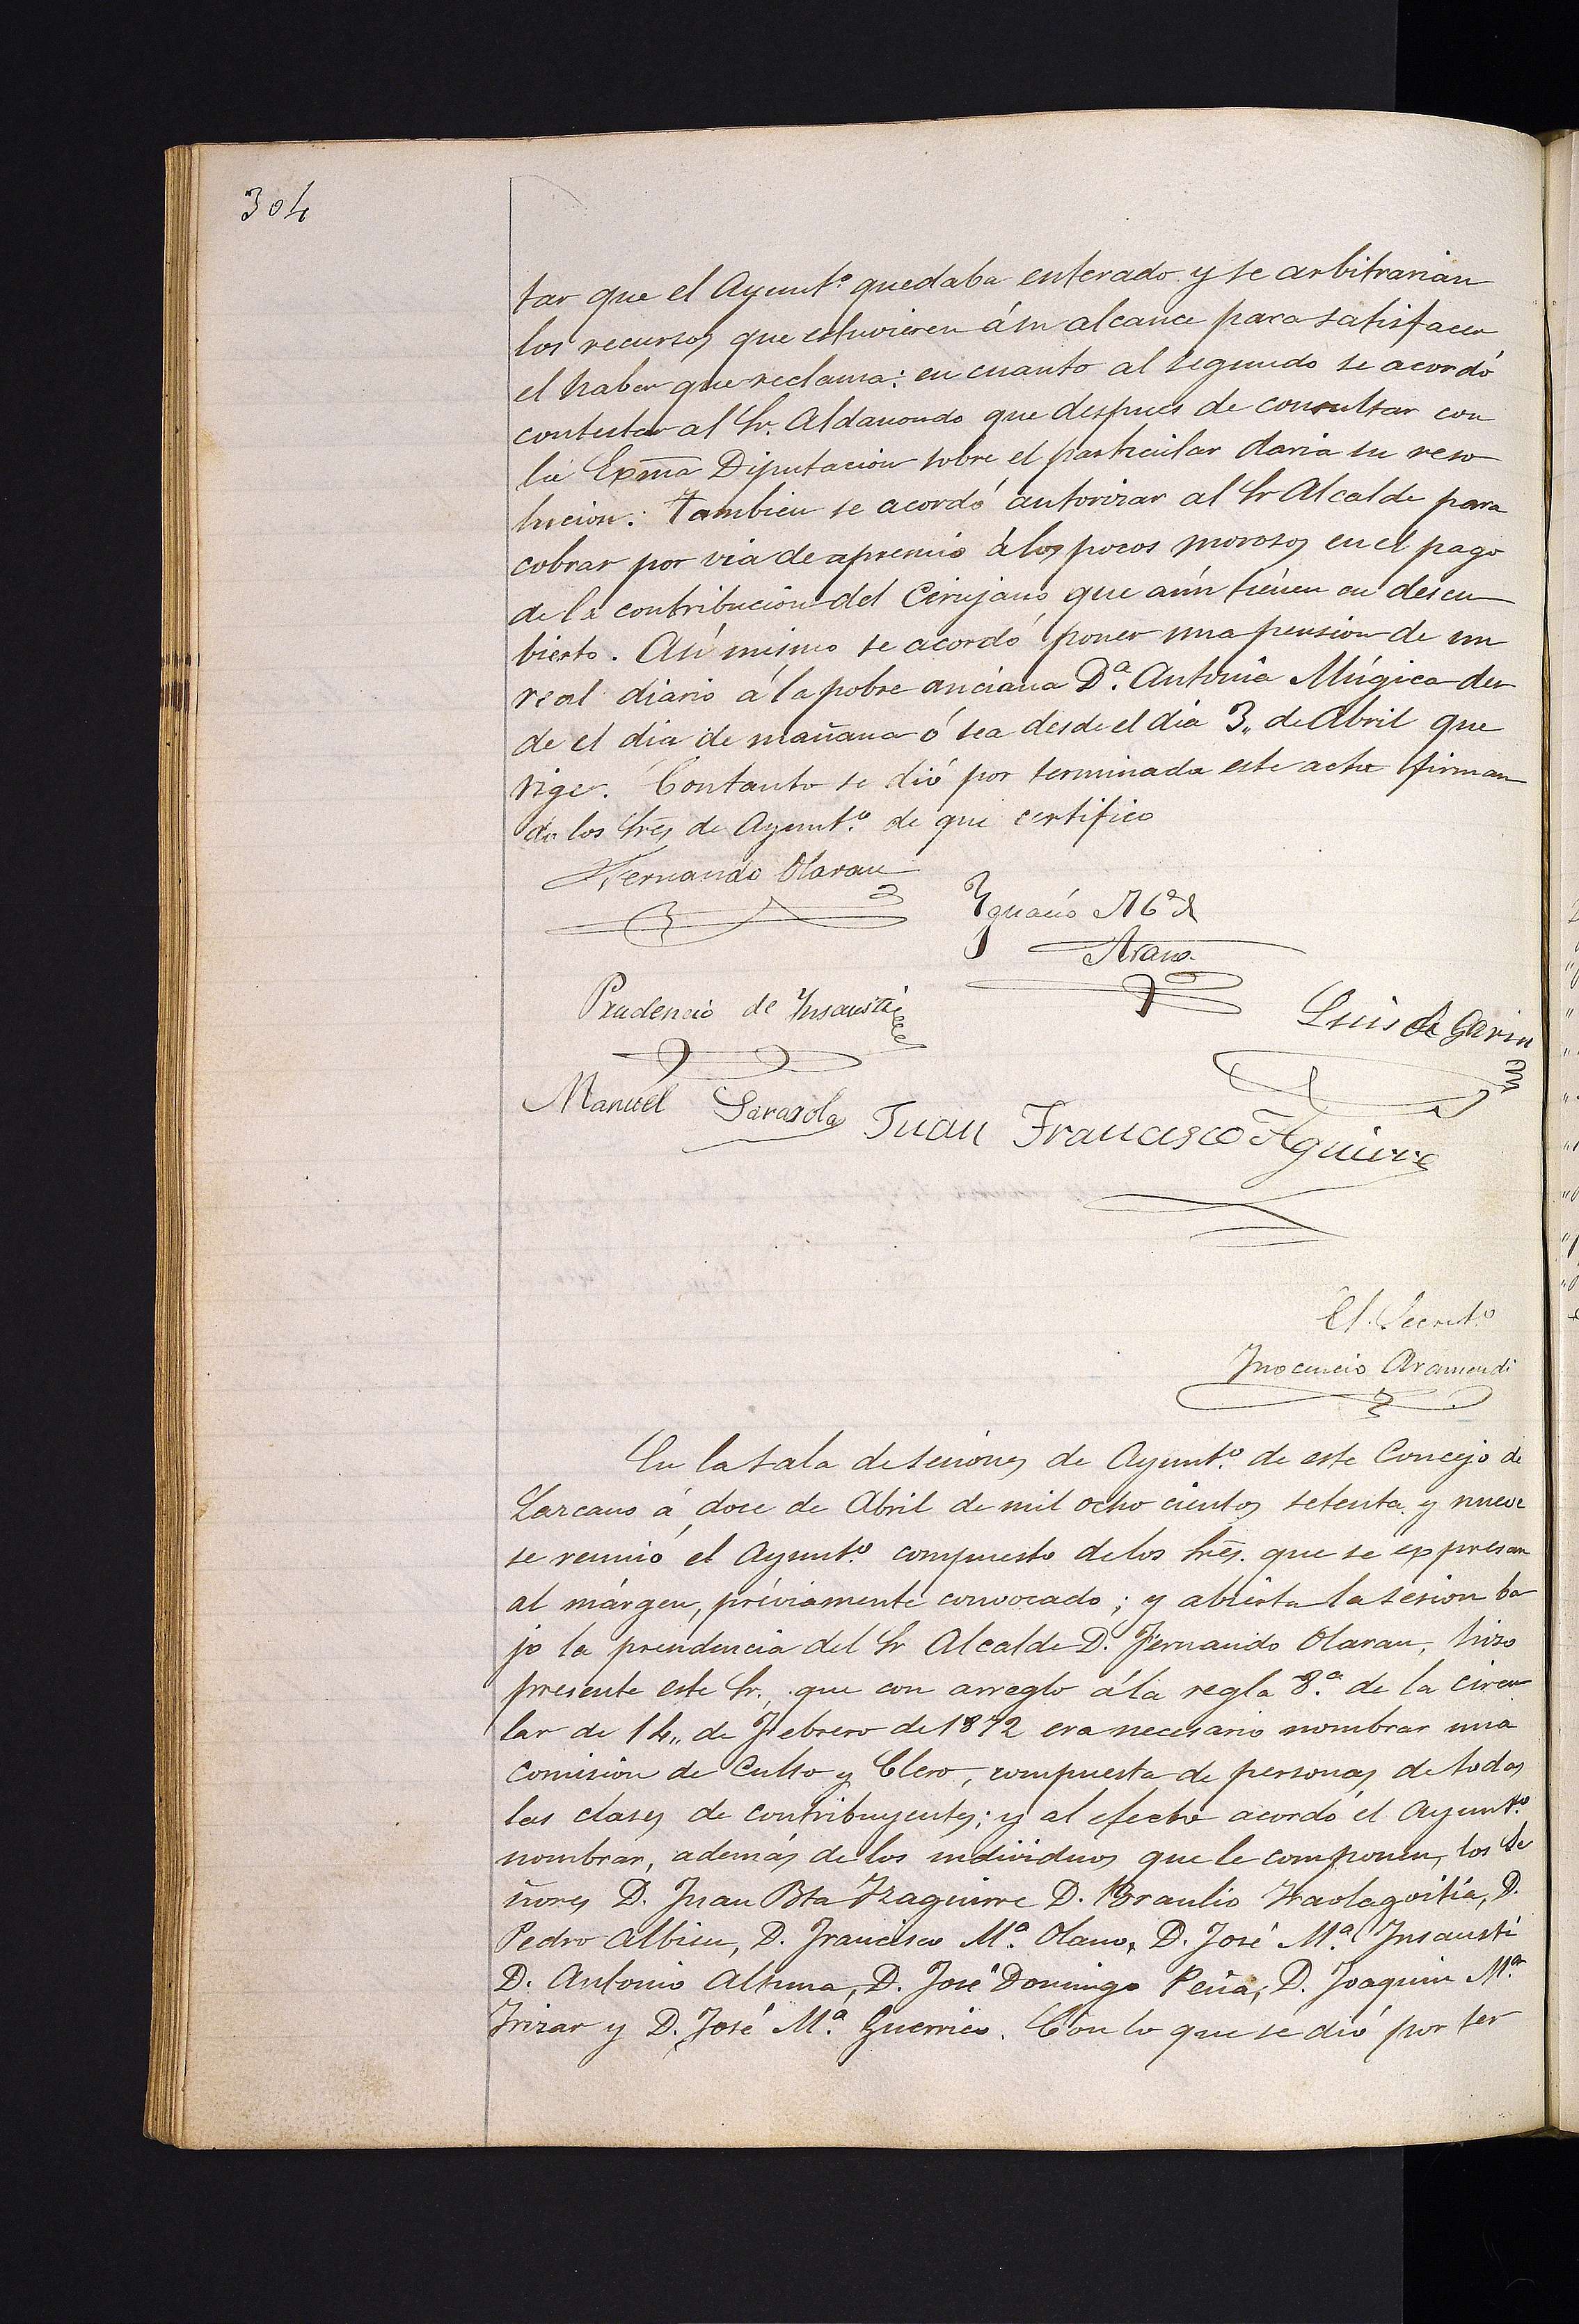 304
tar que el Ayunt.º quedaba enterado y se arbitrarian
los recursos que estuvieren á su alcance para satisfacer
el haber que reclama: en cuanto al segundo se acordó
contestar al Sr. Aldanondo que despues de consultar con
la Exma Diputacion sobre el particular daria su reso
lucion. Tambien se acordó autorizar al Sr Alcalde para
cobrar por via de apremio á los pocos morosos en el pago
de la contribucion del Cirujano que aún tienen en descu
bierto. Así mismo se acordó poner una pension de un
real diario á la pobre anciana D.ª Antonia Múgica des
de el dia de mañana ó sea desde el dia 3,, de Abril que
rige. Contanto se dió por terminada este acta firman
do los Sres de Ayunt.º de que certifico
Fernando Olaran
Ygnacio M.ª de
Arana
Prudencio de Ynsausti
Luis de Garin
Manuel Sarasola Juan Francisco Aguirre
El Secret.º
Inocencio Aramendi
En la sala de sesiones de Ayunt.º de este Concejo de
Lazcano á doce de Abril de mil ocho cientos setenta y nueve
se reunió el Ayunt.º compuesto de los Sres. que se expresan
al márgen, préviamente convocado; y abierta la sesion ba
jo la presidencia del Sr Alcalde D. Fernando Olaran, hizo
presente este Sr., que con arreglo á la regla 8.ª de la circu
lar de 14,, de Febrero de 1872 era necesario nombrar una
comision de Culto y Clero, compuesta de personas de todas
las clases de contribuyentes; y al efecto acordó el Ayunt.º
nombrar, además de los individuos que le componen, los Se
ñores D. Juan Bta Yzaguirre D. Braulio Yraolagoitia, D.
Pedro Albisu, D. Francisco M.ª Olano, D. José M.ª Insausti
D. Antonio Altuna, D. José Domingo Peña, D. Joaquin M.ª
Irizar y D. José M.ª Guerrico. Con lo que se dió por ter